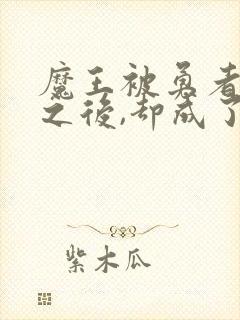 魔王被勇者
之後,却成了
紫木瓜